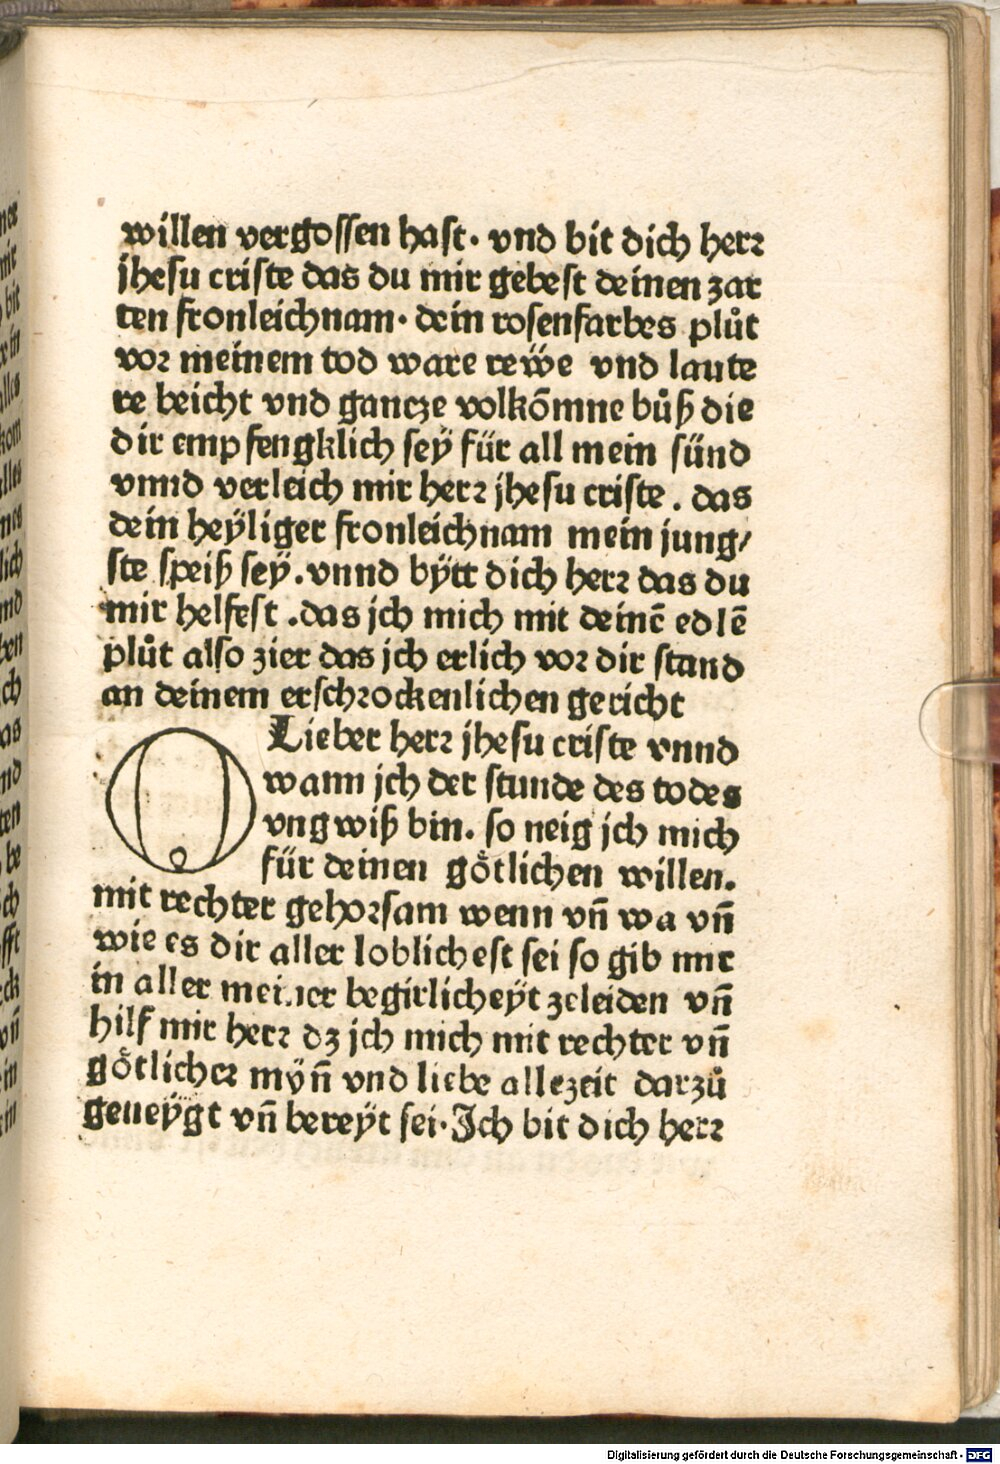 willen vergossen hast· vnd bit dich herꝛ
jhesu criste das du mir gebest deinen zar
ten fronleichnam· dein rosenfarbes plůt
voꝛ meinem tod ware rewe vnd laute
re beicht vnd gancze volkōmne bůß die
dir empfengklich seÿ für all mein sünd
vnnd verleich mir herꝛ jhesu criste. das
dein heÿliger fronleichnam mein jung/
ste speiß seÿ. vnnd bÿtt dich herꝛ das du
mir helfest .das jch mich mit deinē edlē
plůt also zier das jch erlich voꝛ dir stand
an deinem erschꝛockenlichen gericht
O Lieber herꝛ jhesu criste vnnd
wann jch der stunde des todes
vngwiß bin. so neig jch mich
für deinen götlichen willen.
mit rechter gehoꝛsam wenn vn̄ wa vn̄
wie es dir aller loblichest sei so gib mir
in aller meiner begirlicheÿt zeleiden vn̄
hilf mir herꝛ dz jch mich mit rechter vn̄
götlicheꝛ mÿn̄ vnd liebe allezeit darzů
geneÿgt vn̄ bereÿt sei· Jch bit dich herꝛ
Digitalisierung gefördert durch die Deutsche Forschungsgemeinschaft - DFG